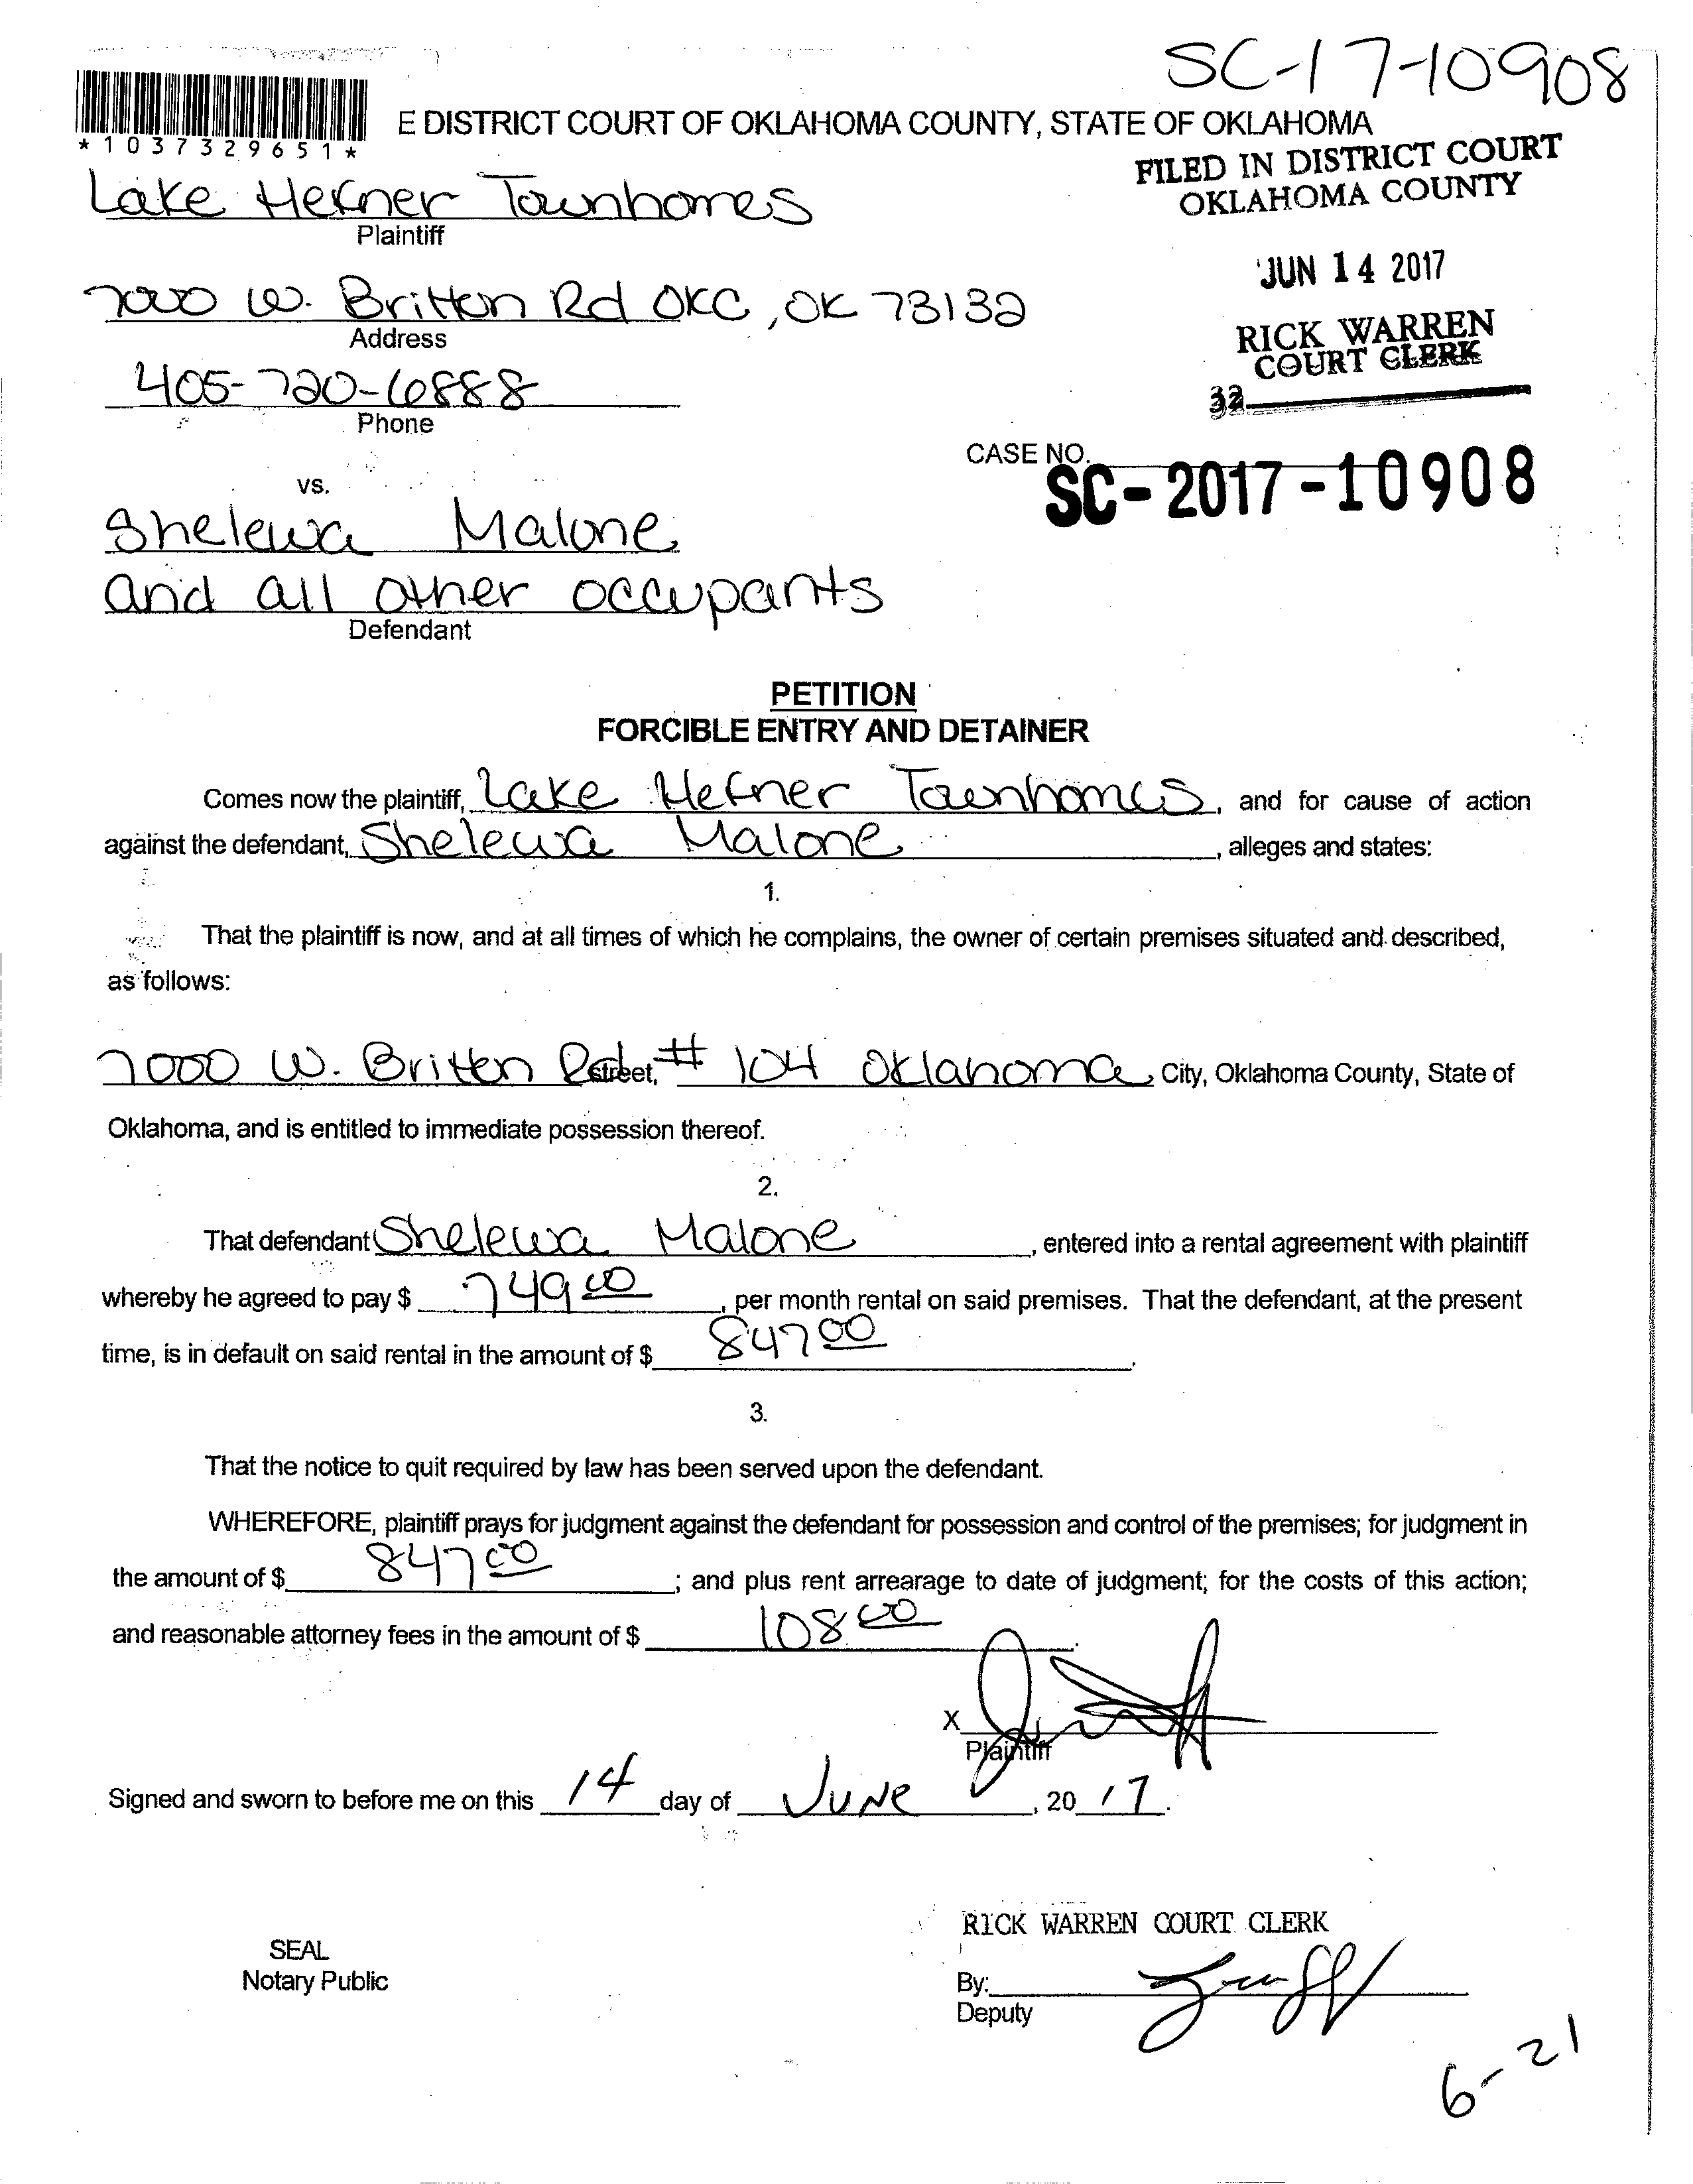 SC-17-10908
*1037329651*
E DISTRICT COURT OF OKLAHOMA COUNTY, STATE OF OKLAHOMA
FILED IN DISTRICT COURT
OKLAHOMA COUNTY
Lake Hefner Townhomes
Plaintiff
JUN 14 2017
7000 W. Britton Rd OKC, OK 73132
Address
RICK WARREN
COURT CLERK
405-720-6888
Phone
32
CASE NO.
SC-2017-10908
vs.
Shelewa Malone
and all other occupants
Defendant
PETITION
FORCIBLE ENTRY AND DETAINER
Comes now the plaintiff, Lake Hefner Townhomes, and for cause of action
against the defendant, Shelewa Malone, alleges and states:
1.
That the plaintiff is now, and at all times of which he complains, the owner of certain premises situated and described,
as follows:
7000 W. Britton Rd street, # 104 Oklahoma City, Oklahoma County, State of
Oklahoma, and is entitled to immediate possession thereof.
2.
That defendant Shelewa Malone, entered into a rental agreement with plaintiff
whereby he agreed to pay $ 749.00, per month rental on said premises. That the defendant, at the present
time, is in default on said rental in the amount of $ 847.00.
3.
That the notice to quit required by law has been served upon the defendant.
WHEREFORE, plaintiff prays for judgment against the defendant for possession and control of the premises; for judgment in
the amount of $ 847.00; and plus rent arrearage to date of judgment; for the costs of this action;
and reasonable attorney fees in the amount of $ 108.00.
X
Plaintiff
Signed and sworn to before me on this 14 day of June, 2017.
RICK WARREN COURT CLERK
SEAL
Notary Public
By:
Deputy
6-21